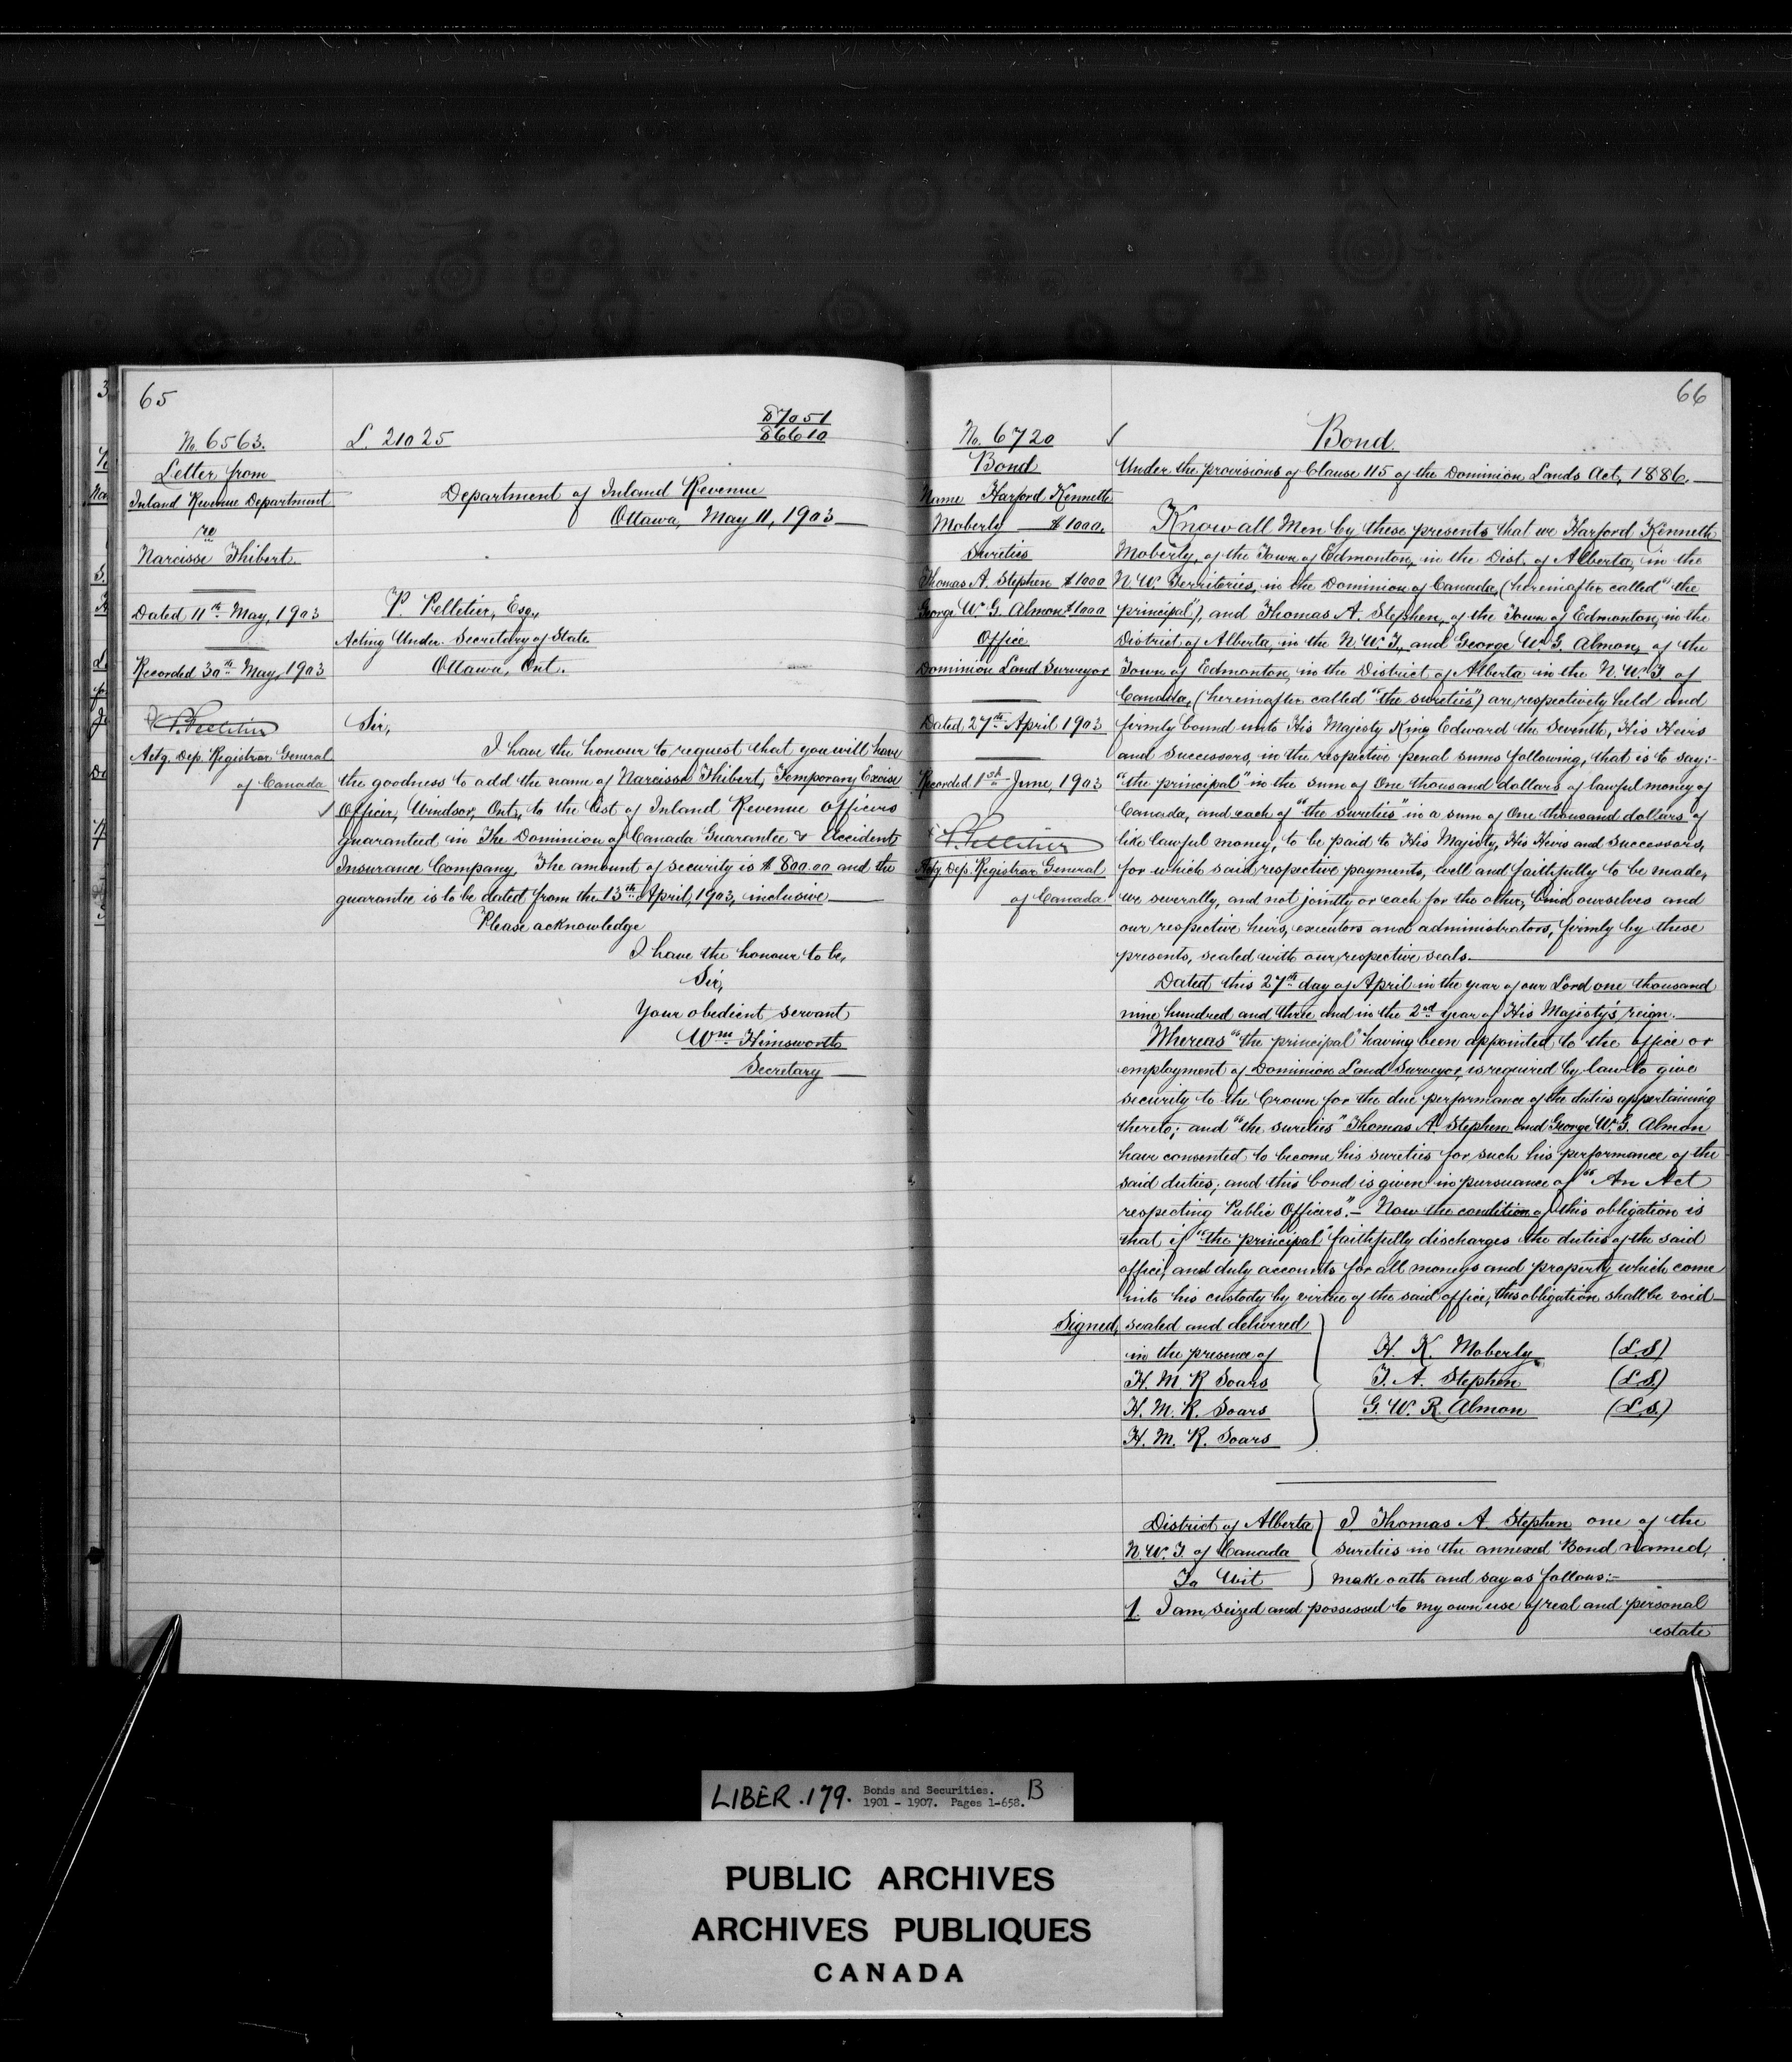 65
No. 6563.
Letter from
Inland Revenue Department
re
Narcisse Thibert.
Dated 11th May, 1903
Recorded 30th May, 1903
P. Pelletier
Actg. Dep. Registrar General
of Canada
L. 21025
87051
86610
Department of Inland Revenue
Ottawa, May 11, 1903
P. Pelletier, Esq.,
Acting Under Secretary of State
Ottawa, Ont.
Sir,
I have the honour to request that you will have
the goodness to add the name of Narcisse Thibert, Temporary Excise
Officer, Windsor, Ont., to the List of Inland Revenue Officers
guaranteed in The Dominion of Canada Guarantee & Accident
Insurance Company. The amount of security is $800.00 and the
guarantee is to be dated from the 13th April, 1903, inclusive
Please acknowledge
I have the honour to be,
Sir,
Your obedient servant
Wm Himsworth
Secretary
66
No. 6720
Bond
Name Harford Kenneth
Moberly $1000.
Sureties
Thomas A. Stephen $1000
George W. G. Almon $1000
Office
Dominion Land Surveyor
Dated 27th April 1903
Recorded 1st June, 1903
P. Pelletier
Actg Dep. Registrar General
of Canada
Bond
Under the provisions of Clause 115 of the Dominion Lands Act, 1886.
Know all Men by these presents that we Harford Kenneth
Moberly, of the Town of Edmonton, in the Dist. of Alberta, in the
N. W. Territories, in the Dominion of Canada, (hereinafter called "the
principal"), and Thomas A. Stephen, of the Town of Edmonton, in the
District of Alberta, in the N. W. T., and George W. G. Almon, of the
Town of Edmonton, in the District of Alberta in the N. W. T. of
Canada, (hereinafter called "the sureties") are respectively held and
firmly bound unto His Majesty King Edward the Seventh, His Heirs
and Successors, in the respective penal sums following, that is to say:-
"the principal" in the sum of One thousand dollars of lawful money of
Canada, and each of "the sureties" in a sum of One thousand dollars of
like lawful money, to be paid to His Majesty, His Heirs and Successors,
for which said respective payments, well and faithfully to be made,
we severally, and not jointly or each for the other, bind ourselves and
our respective heirs, executors and administrators, firmly by these
presents, sealed with our respective seals.
Dated this 27th day of April in the year of our Lord one thousand
nine hundred and three and in the 2nd year of His Majesty's reign.
Whereas "the principal" having been appointed to the office or
employment of Dominion Land Surveyor, is required by law to give
security to the Crown for the due performance of the duties appertaining
thereto; and "the sureties" Thomas A. Stephen and George W. G. Almon
have consented to become his sureties for such his performance of the
said duties; and this bond is given in pursuance of "An Act
respecting Public Officers". - Now the condition of this obligation is
that if "the principal" faithfully discharges the duties of the said
office, and duly accounts for all moneys and property which come
into his custody by virtue of the said office, this obligation shall be void
Signed, sealed and delivered
in the presence of
H. K. Moberly (L.S)
H. M. R Soars
T. A. Stephen (L.S.)
H. M. R. Soars
G. W. R. Almon (L.S.)
H. M. R. Soars
District of Alberta } I Thomas A. Stephen one of the
N. W. T. of Canada } sureties in the annexed Bond named,
To Wit } make oath and say as follows:-
1. I am seized and possessed to my own use of real and personal
estate
LIBER . 179. Bonds and Securities. B
1901 - 1907. Pages 1-658.
PUBLIC ARCHIVES
ARCHIVES PUBLIQUES
CANADA